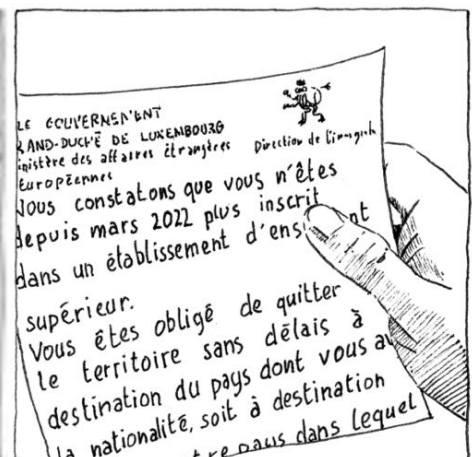 LE GOUVERNEMENT
RAND-DUCHÉ DE LUXEMBOURG
inistère des affaires étrangères
Européennes
Direction de l'immigrati
Nous constatons que vous n'êtes
depuis mars 2022 plus inscrit
dans un établissement d'ens nt
supérieur.
Vous êtes obligé de quitter
le territoire sans délais à
destination du pays dont vous av
la nationalité, soit à destination
tre pays dans lequel